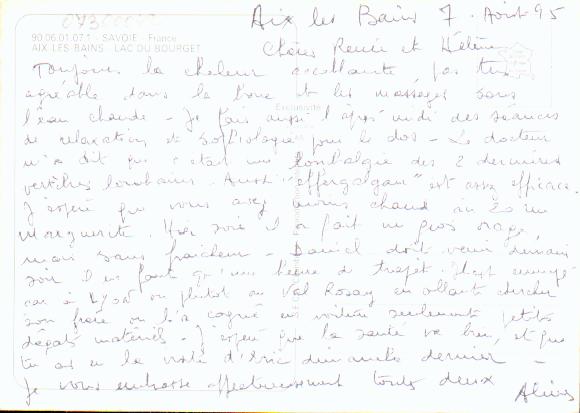 Aix les Bains 7. Août 95
90.06.01.07.1 - SAVOIE - France
AIX-LES-BAINS - LAC DU BOURGET
Chères Renée et Hélène
Toujours la chaleur accablante, pas très
agréable dans la boue et les massages sous
l'eau chaude - Je fais aussi l'après midi des séances
de relaxation et sophrologie pour le dos - Le docteur
m'a dit que c'était une lombalgie des 2 dernières
vertèbres lombaires. Aussi "efferalgan" est assez efficace.
J'espère que vous avez moins chaud
Marguerite. Hier soir il a fait un gros orage,
mais sans fraicheur - Daniel doit venir demain
soir il en faut qu'une heure de trajet. Il est ennuyé
car à Lyon ou plutôt au Val Rosay en allant chercher
son frère on l'a cogné en voiture seulement petits
dégats matériels - J'espère que la santé va bien, et que
tu as eu la visite d'Eric dimanche dernier -
Je vous embrasse affectueusement toutes deux